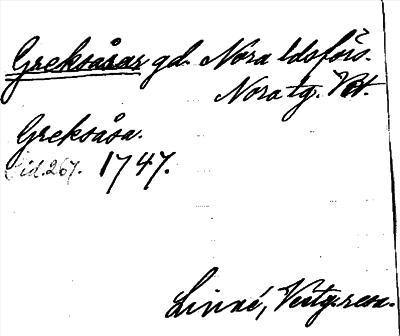 Greksåsar gd. Nora ldsförs.
Nora tg. Vstm.
Greksåsa.
Sid. 267. 1747.
Linné, Vestg. resa.